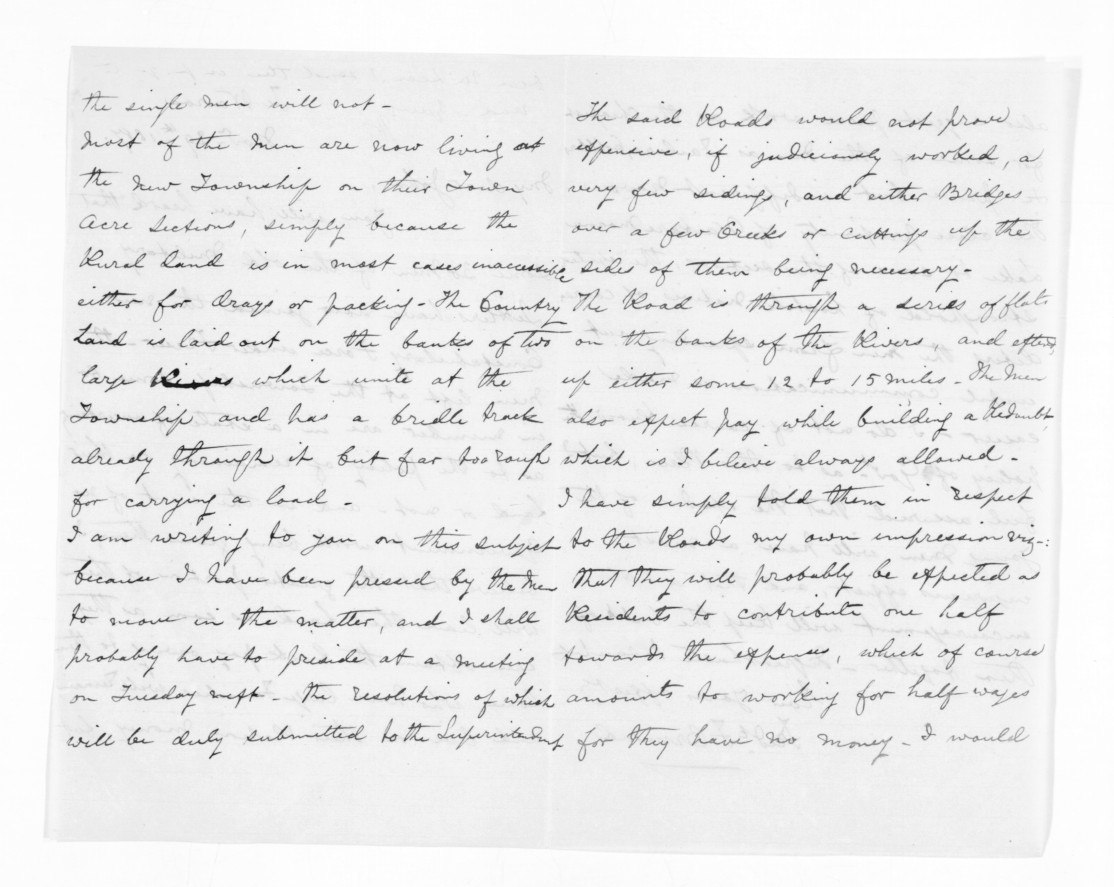 the single men will not -
Most of the Men are now living at
the New Township on their Town
Acre Sections, simply because the
Rural Land is in most cases inaccessible
either for Drays or packing - The Country
Land is laid out on the banks of two
large Rivers which unite at the
Township and has a bridle track
already through it but far too rough
for carrying a load -
I am writing to you on this subject
because I have been pressed by the Men
to move in the matter, and I shall
probably have to preside at a meeting
on Tuesday next - the resolutions of which
will be duly submitted to the Superintendent
The said Roads would not prove
expensive, if judiciously worked, a
very few sidings, and either Bridges
over a few Creeks or cuttings up the
sides of them being necessary -
The Road is through a series of flats
on the banks of the Rivers, and extends
up either some 12 to 15 miles - The Men
also expect pay while building a Redoubt,
which is I believe always allowed -
I have simply told them in respect
to the Roads my own impression viz-:
that they will probably be expected as
Residents to contribute one half
towards the expenses, which of course
amounts to working for half wages
for they have no money - I would